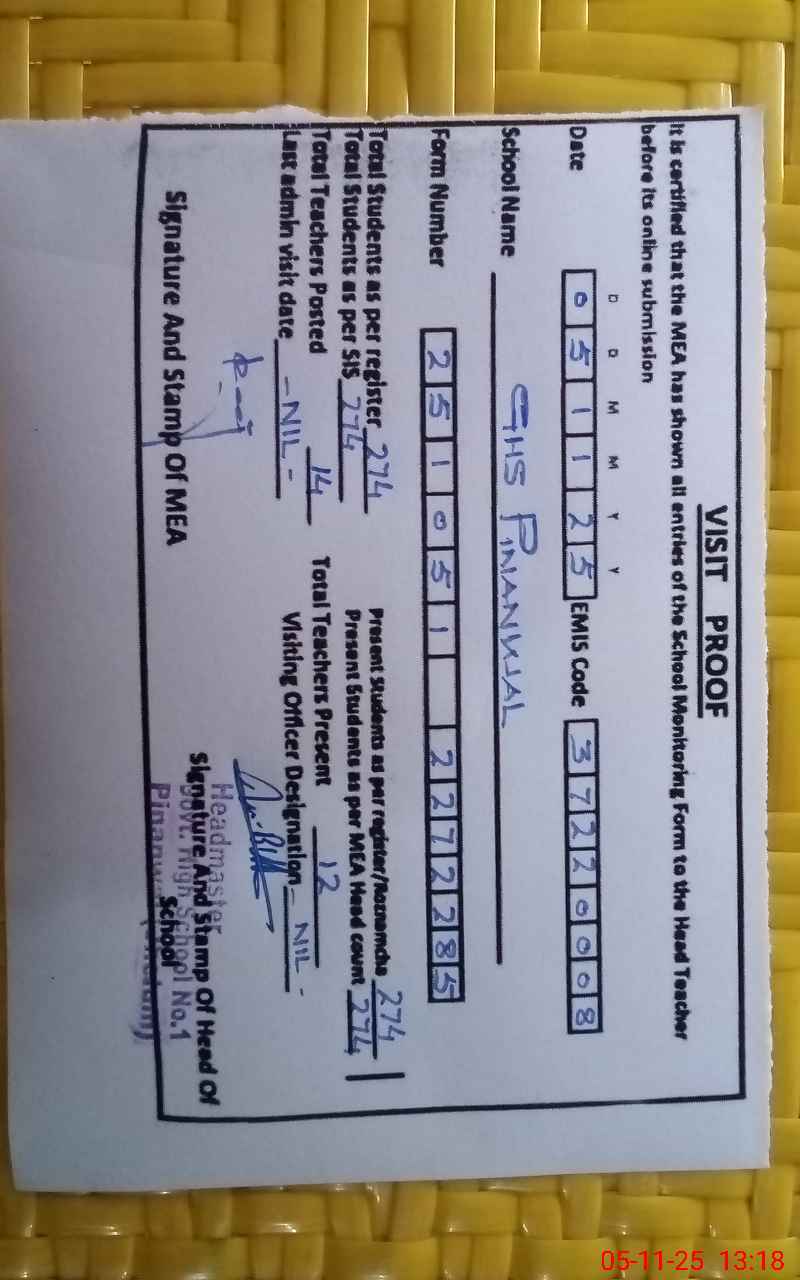 VISIT PROOF
It is certified that the MEA has shown all entries of the School Monitoring Form to the Head Teacher
before its online submission
D D M M Y Y
Date 0 5 1 1 2 5 EMIS Code 3 7 2 2 0 0 0 8
School Name GHS PINANWAL
Form Number 2 5 1 0 5 1 2 2 7 2 2 8 5
Total Students as per register 274 Present Students as per register/Roznamcha 274
Total Students as per SIS 274 Present Students as per MEA Head count 274
Total Teachers Posted 14 Total Teachers Present 12
Last admin visit date - NIL - Visiting Officer Designation - NIL -
Signature And Stamp Of MEA Signature And Stamp Of Head Of
School
Headmaster
Govt. High School No.1
05-11-25 13:18